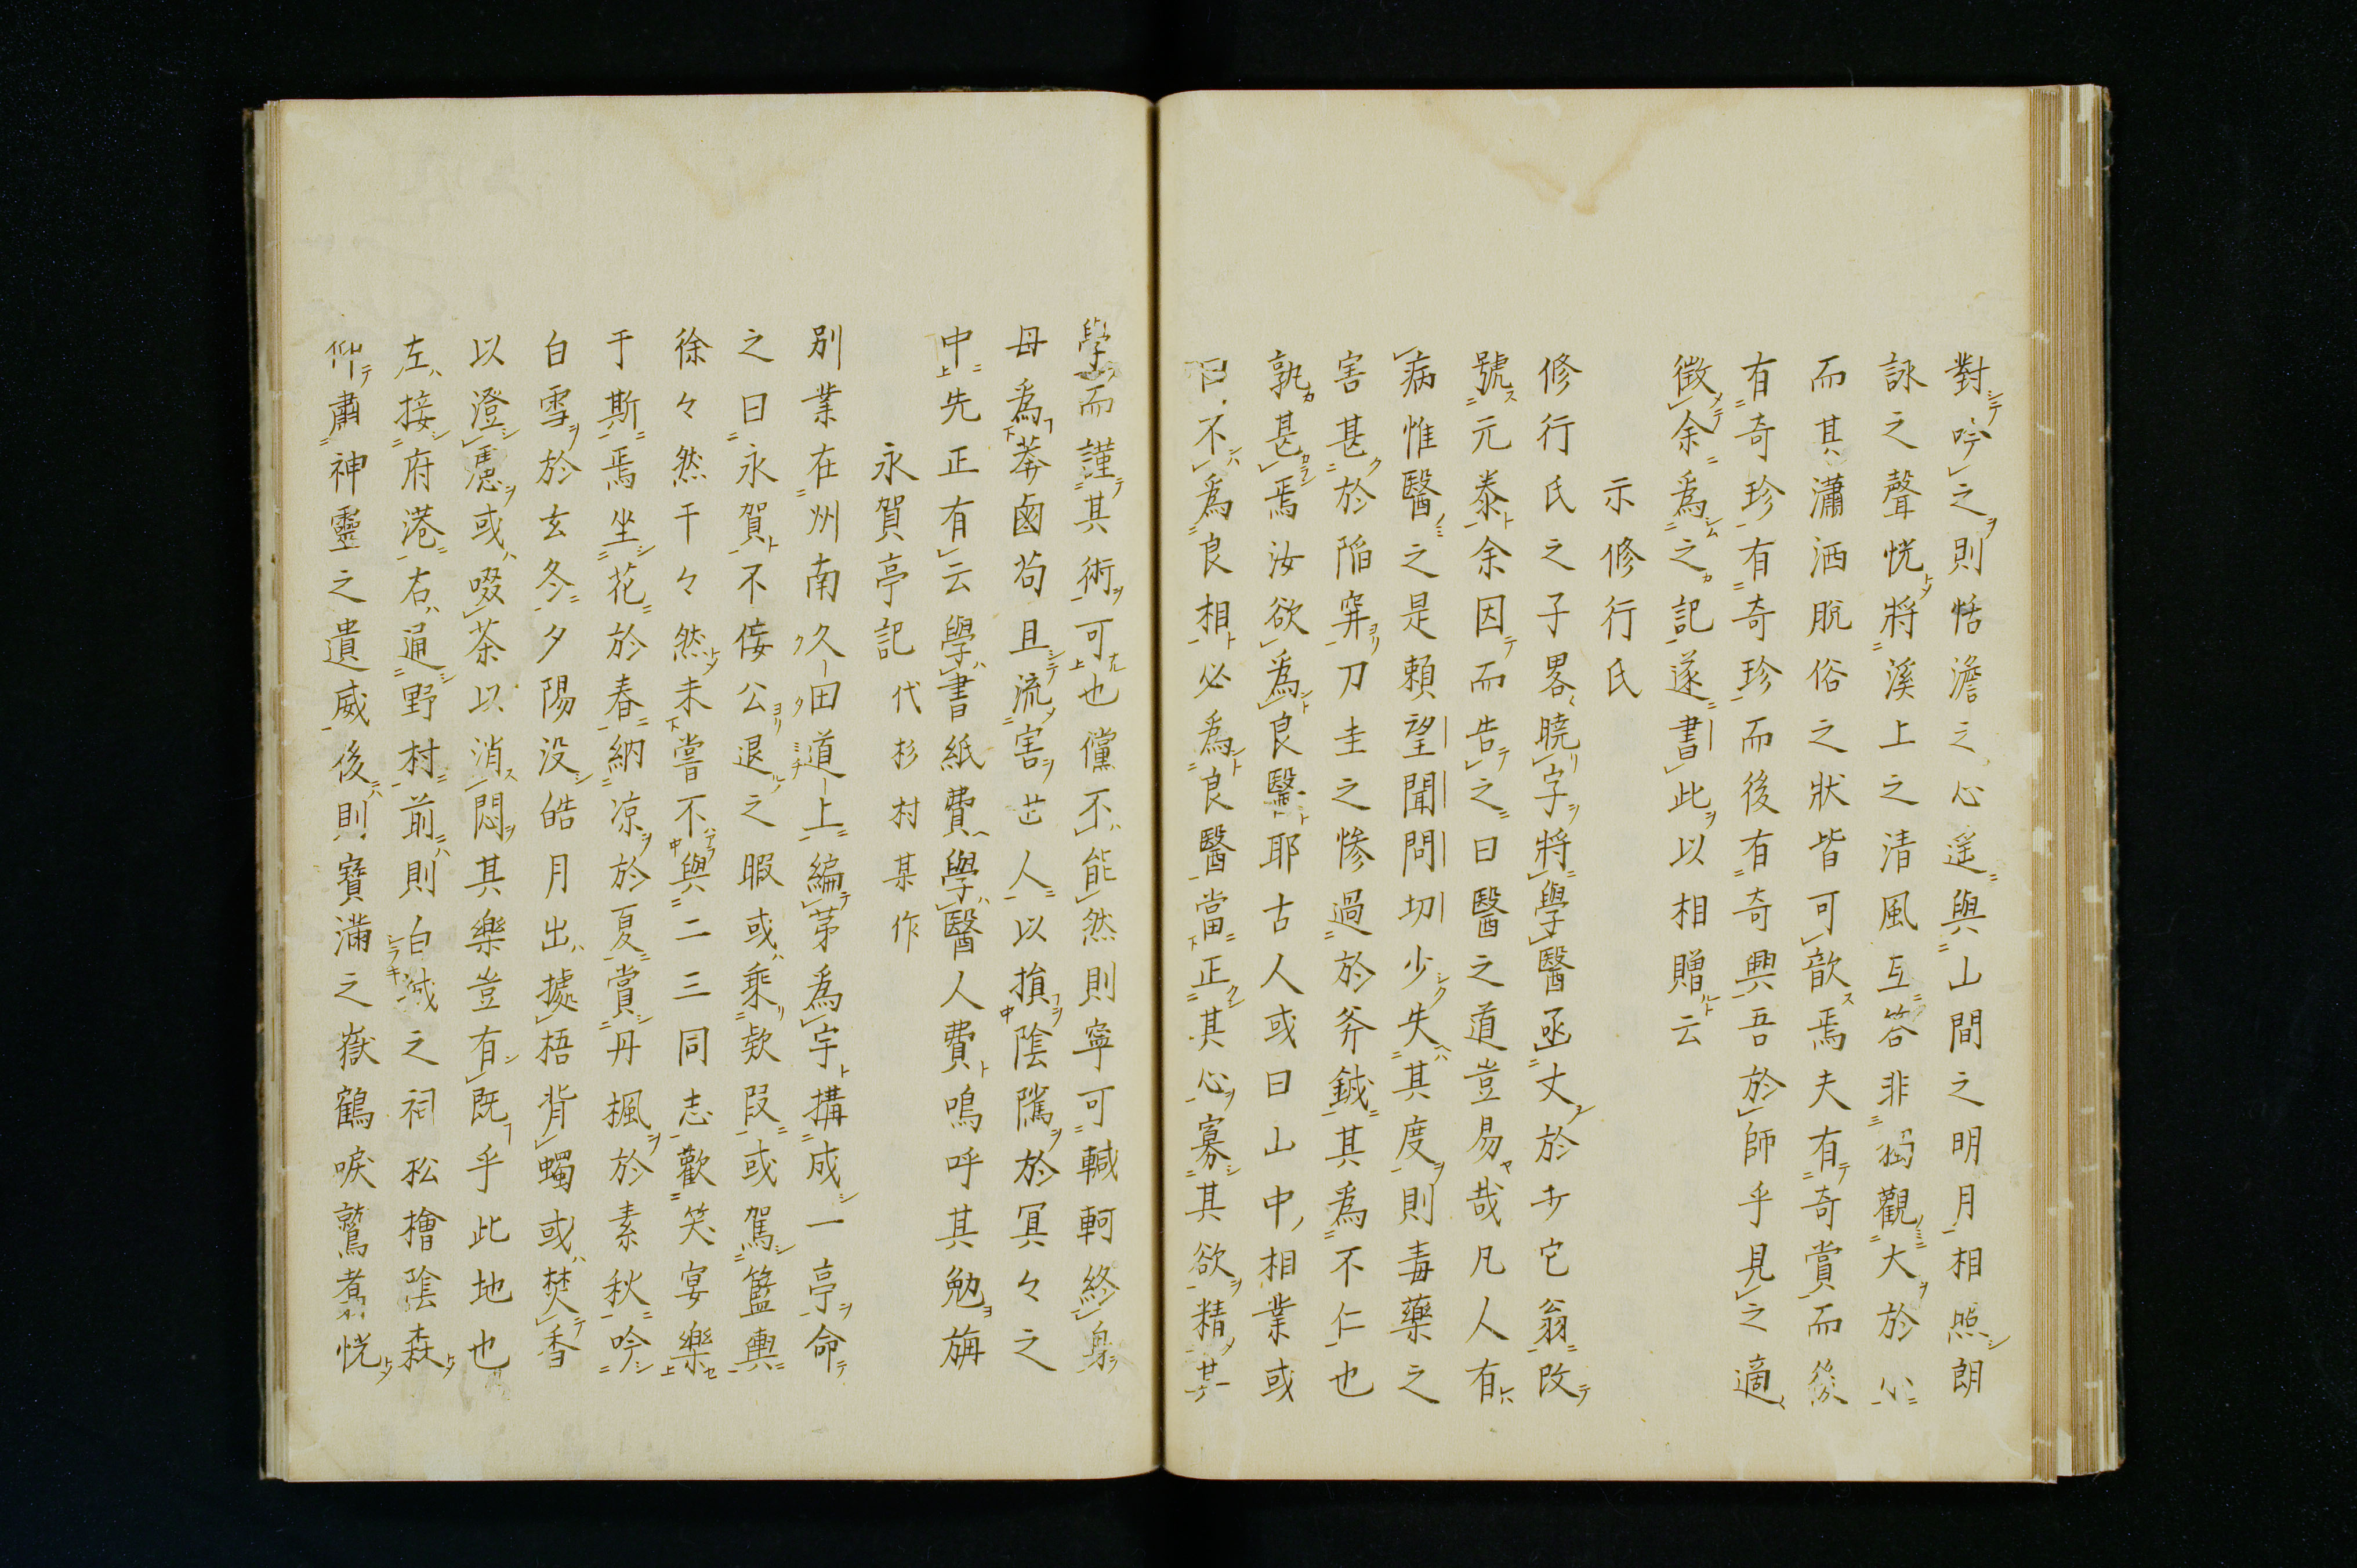 對吟之則恬澹之心遥與山間之明月相照朗
詠之聲恍將溪上之清風互答非獨觀大於心
而其瀟洒脱俗之狀皆可歆焉夫有奇賞而後
有奇珍有奇珍而後有奇興吾於師乎見之適
徴余為之記遂書此以相贈云
示修行氏
修行氏之子畧曉字將學醫函丈於少它翁改
號元泰余因而告之曰醫之道豈易哉凡人有
病惟醫之是頼望聞問切少失其度則毒藥之
害甚於陥穽刀圭之惨過於斧鉞其為不仁也
孰甚焉汝欲為良醫耶古人或曰山中相業或
曰不為良相必為良醫當正其心寡其欲精其
學而謹其術可也儻不能然則寧可轗軻終身
毋為莾鹵苟且流害亡人以損陰隲於冥々之
中先正有云學書紙費學醫人費嗚呼其勉旃
永賀亭記 代杉村某作
別業在州南久田道上編茅為宇搆成一亭命
之曰永賀不侫公退之暇或乘欵段或駕籃輿
徐々然干々然未嘗不與二三同志歡笑宴樂
于斯焉坐花於春納凉於夏賞丹楓於素秋吟
白雪於玄冬夕陽没皓月出據梧背蠋或焚香
以澄慮或啜茶以消悶其樂豈有既乎此地也
左接府港右通野村前則白城之祠松檜陰森
仰肅神靈之遺威後則寶滿之嶽鶴唳鷲翥恍